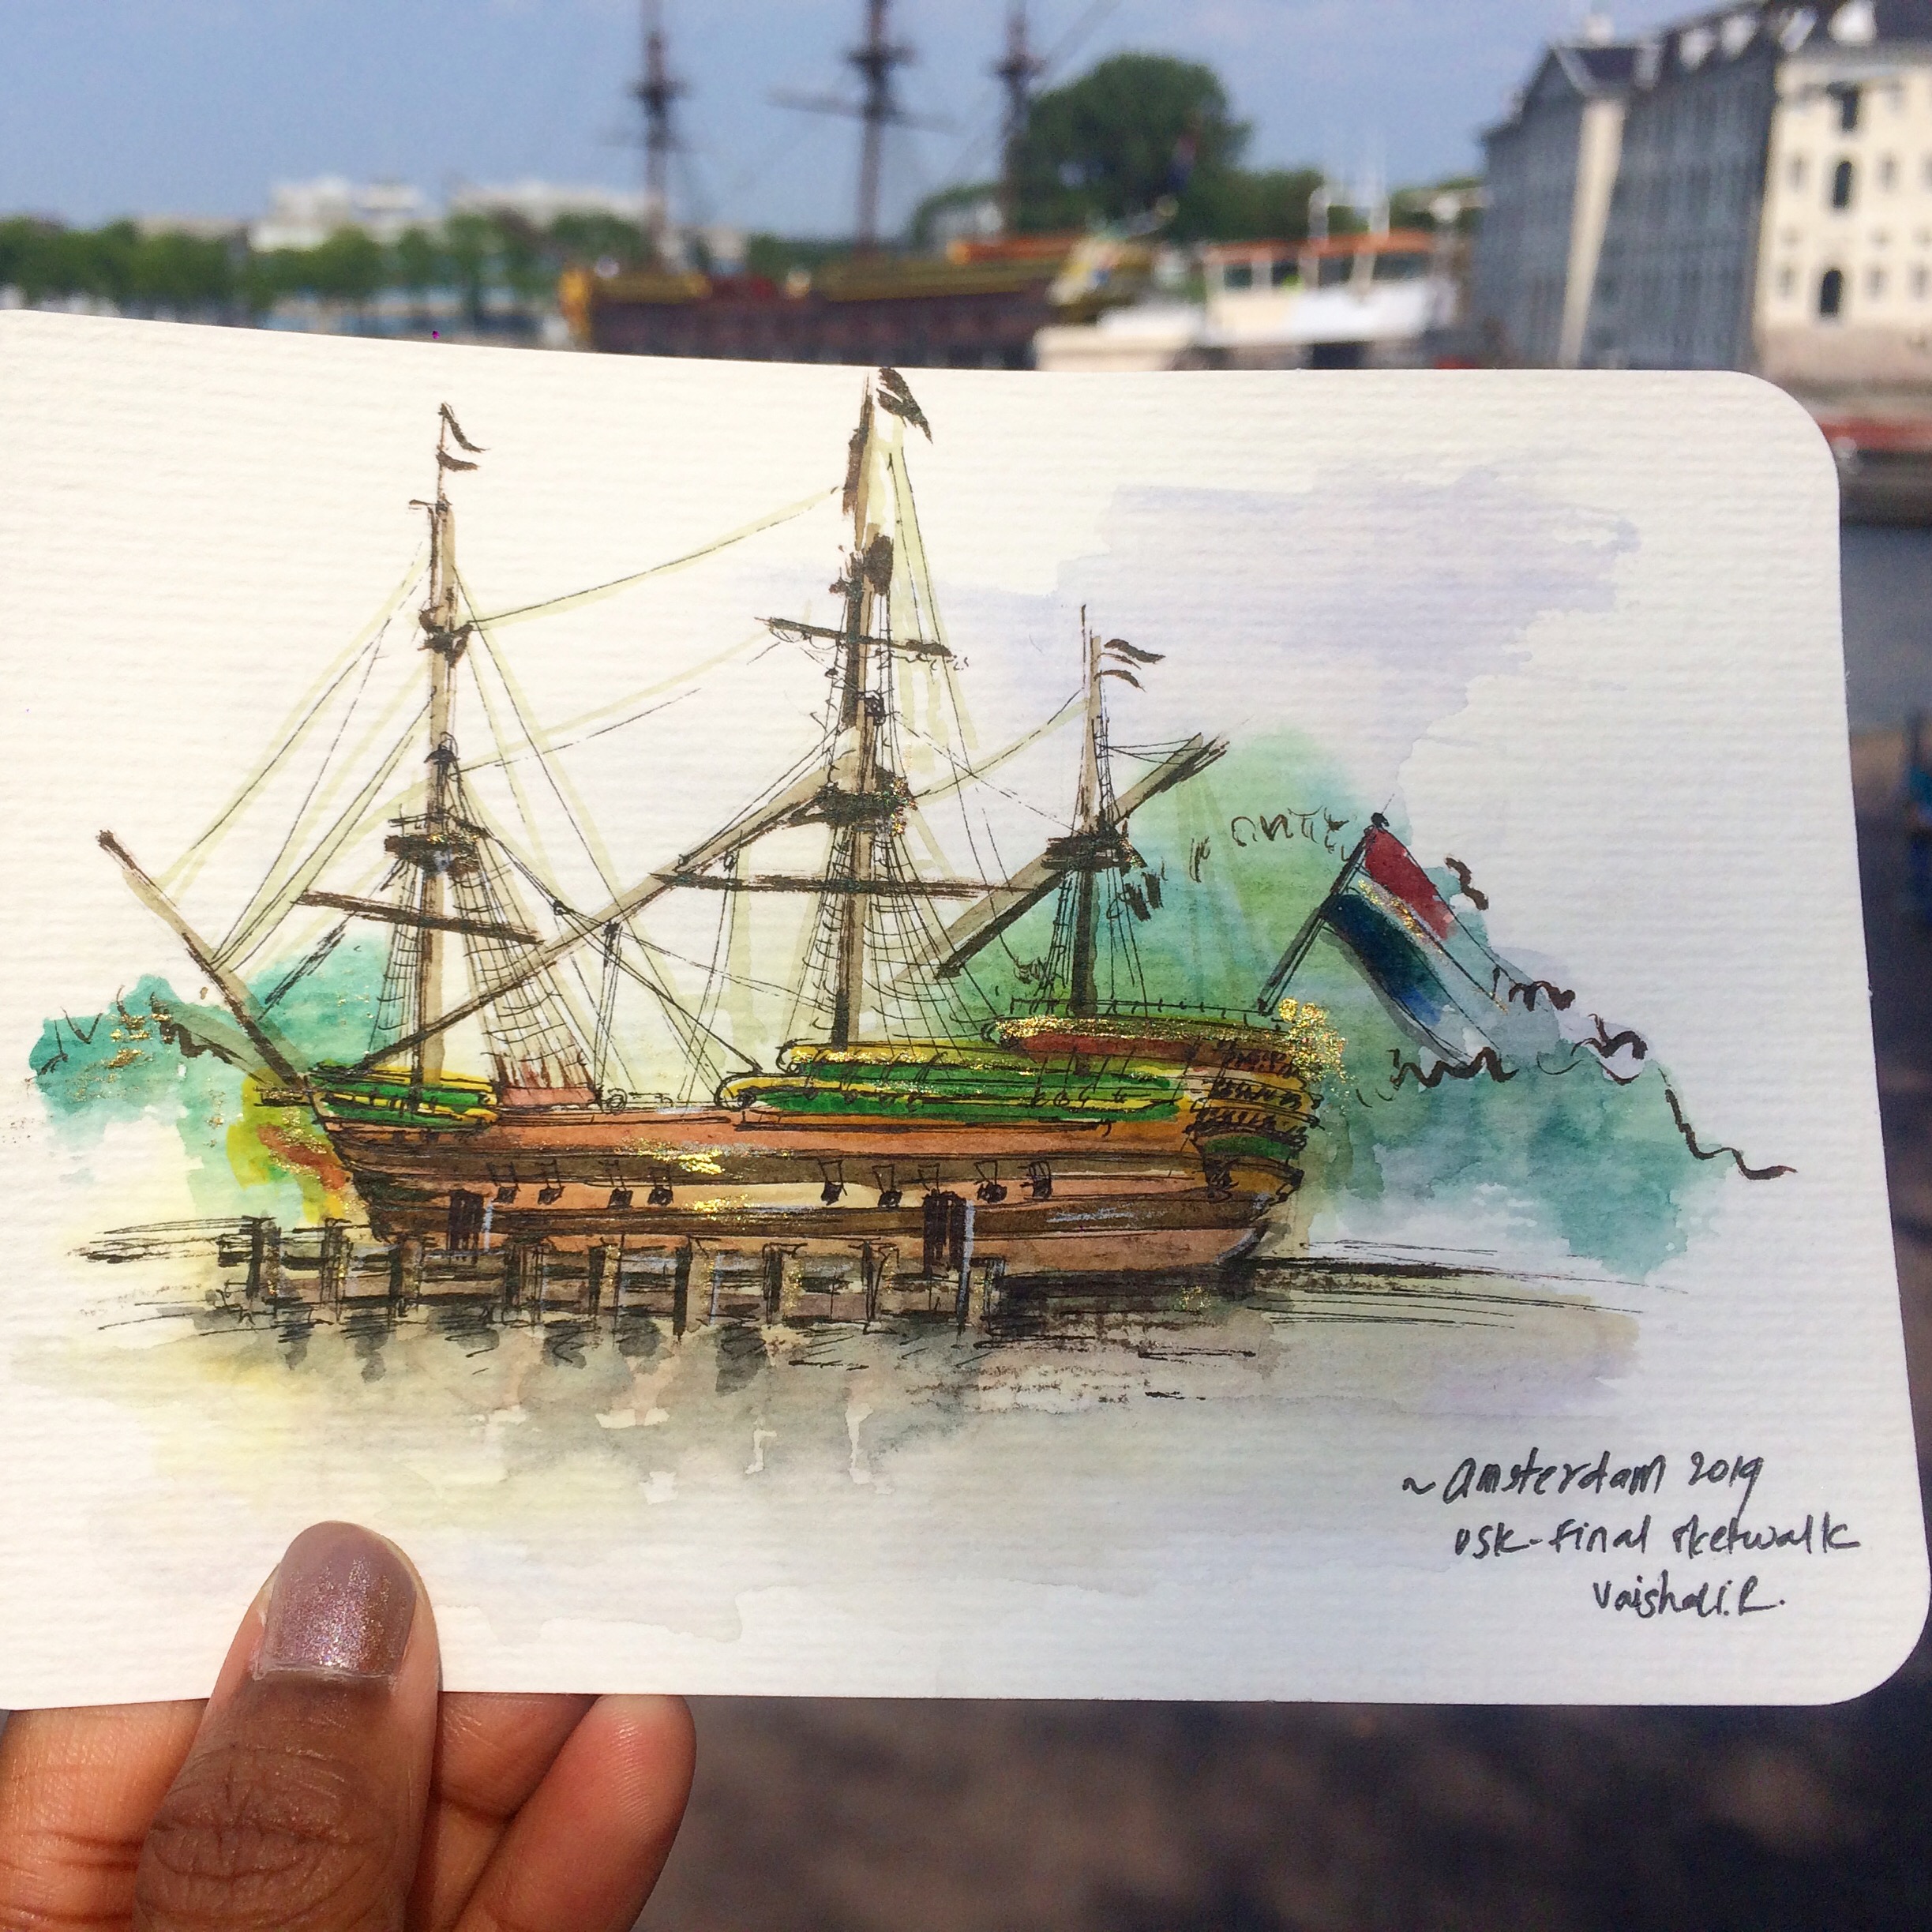 ~Amsterdam 2019
USK-Final sketwalk
Vaishali.R.